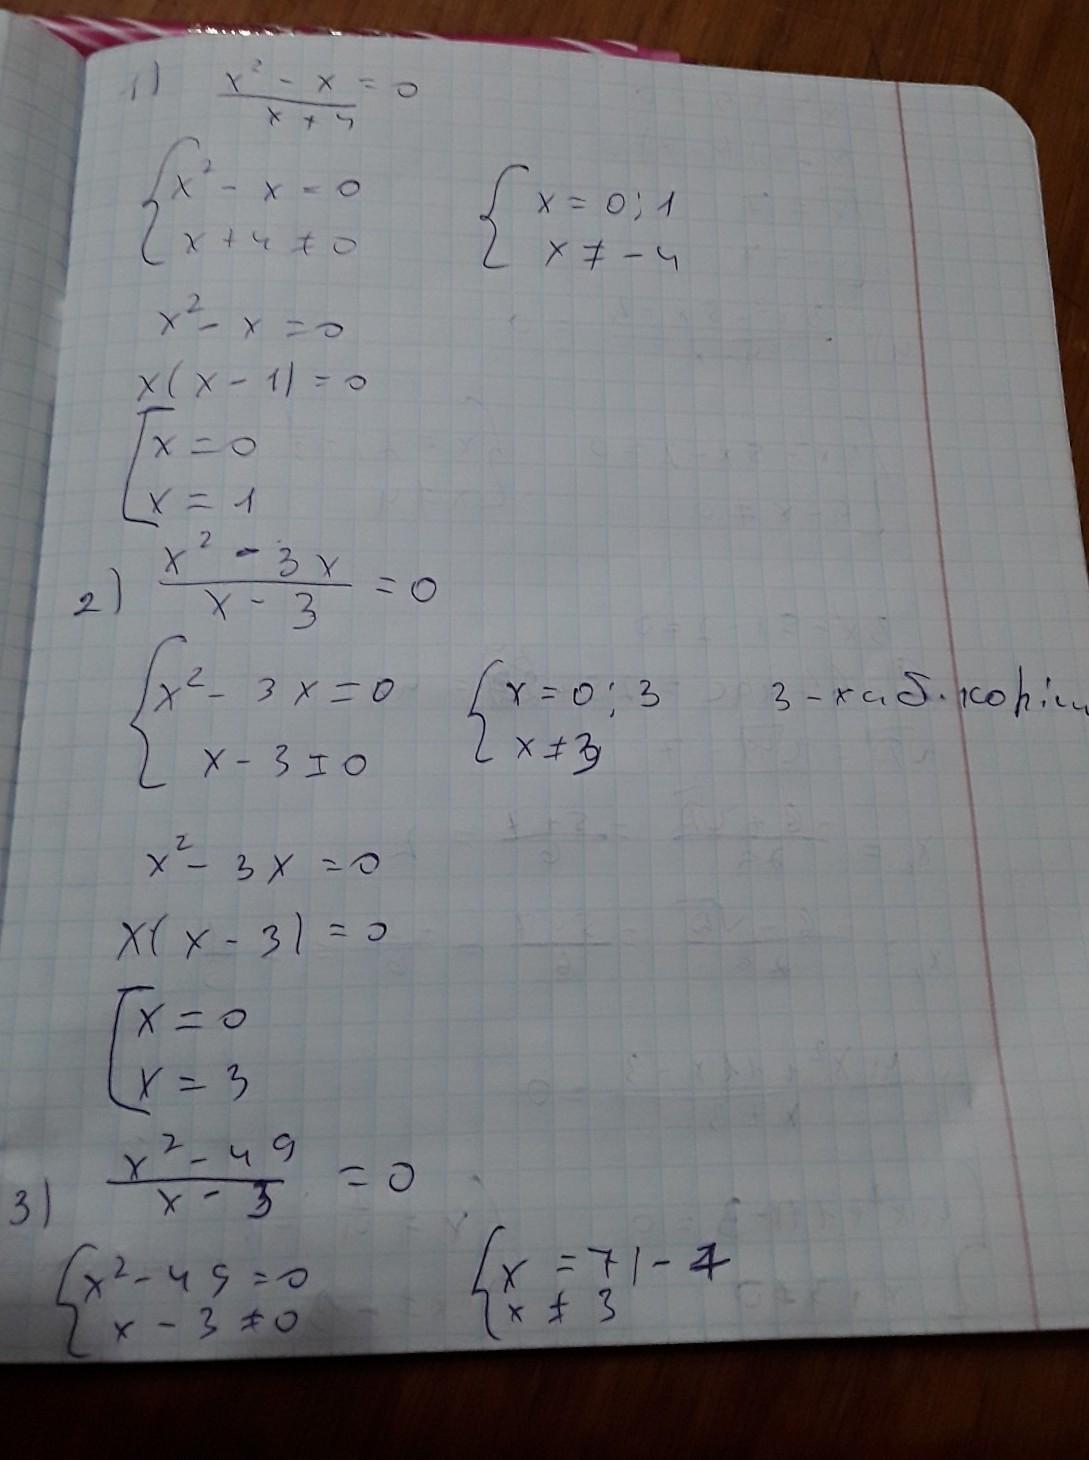 1) x² - x / x + 4 = 0
{ x² - x = 0 { x = 0; 1
x + 4 ≠ 0 x ≠ - 4
x² - x = 0
x( x - 1) = 0
[ x = 0
x = 1
2) x² - 3x / x - 3 = 0
{ x² - 3x = 0 { x = 0; 3 3 - хиб. корінь
x - 3 ≠ 0 x ≠ 3
x² - 3x = 0
x( x - 3) = 0
[ x = 0
x = 3
3) x² - 49 / x - 3 = 0
{ x² - 49 = 0 { x = 7; - 7
x - 3 ≠ 0 x ≠ 3